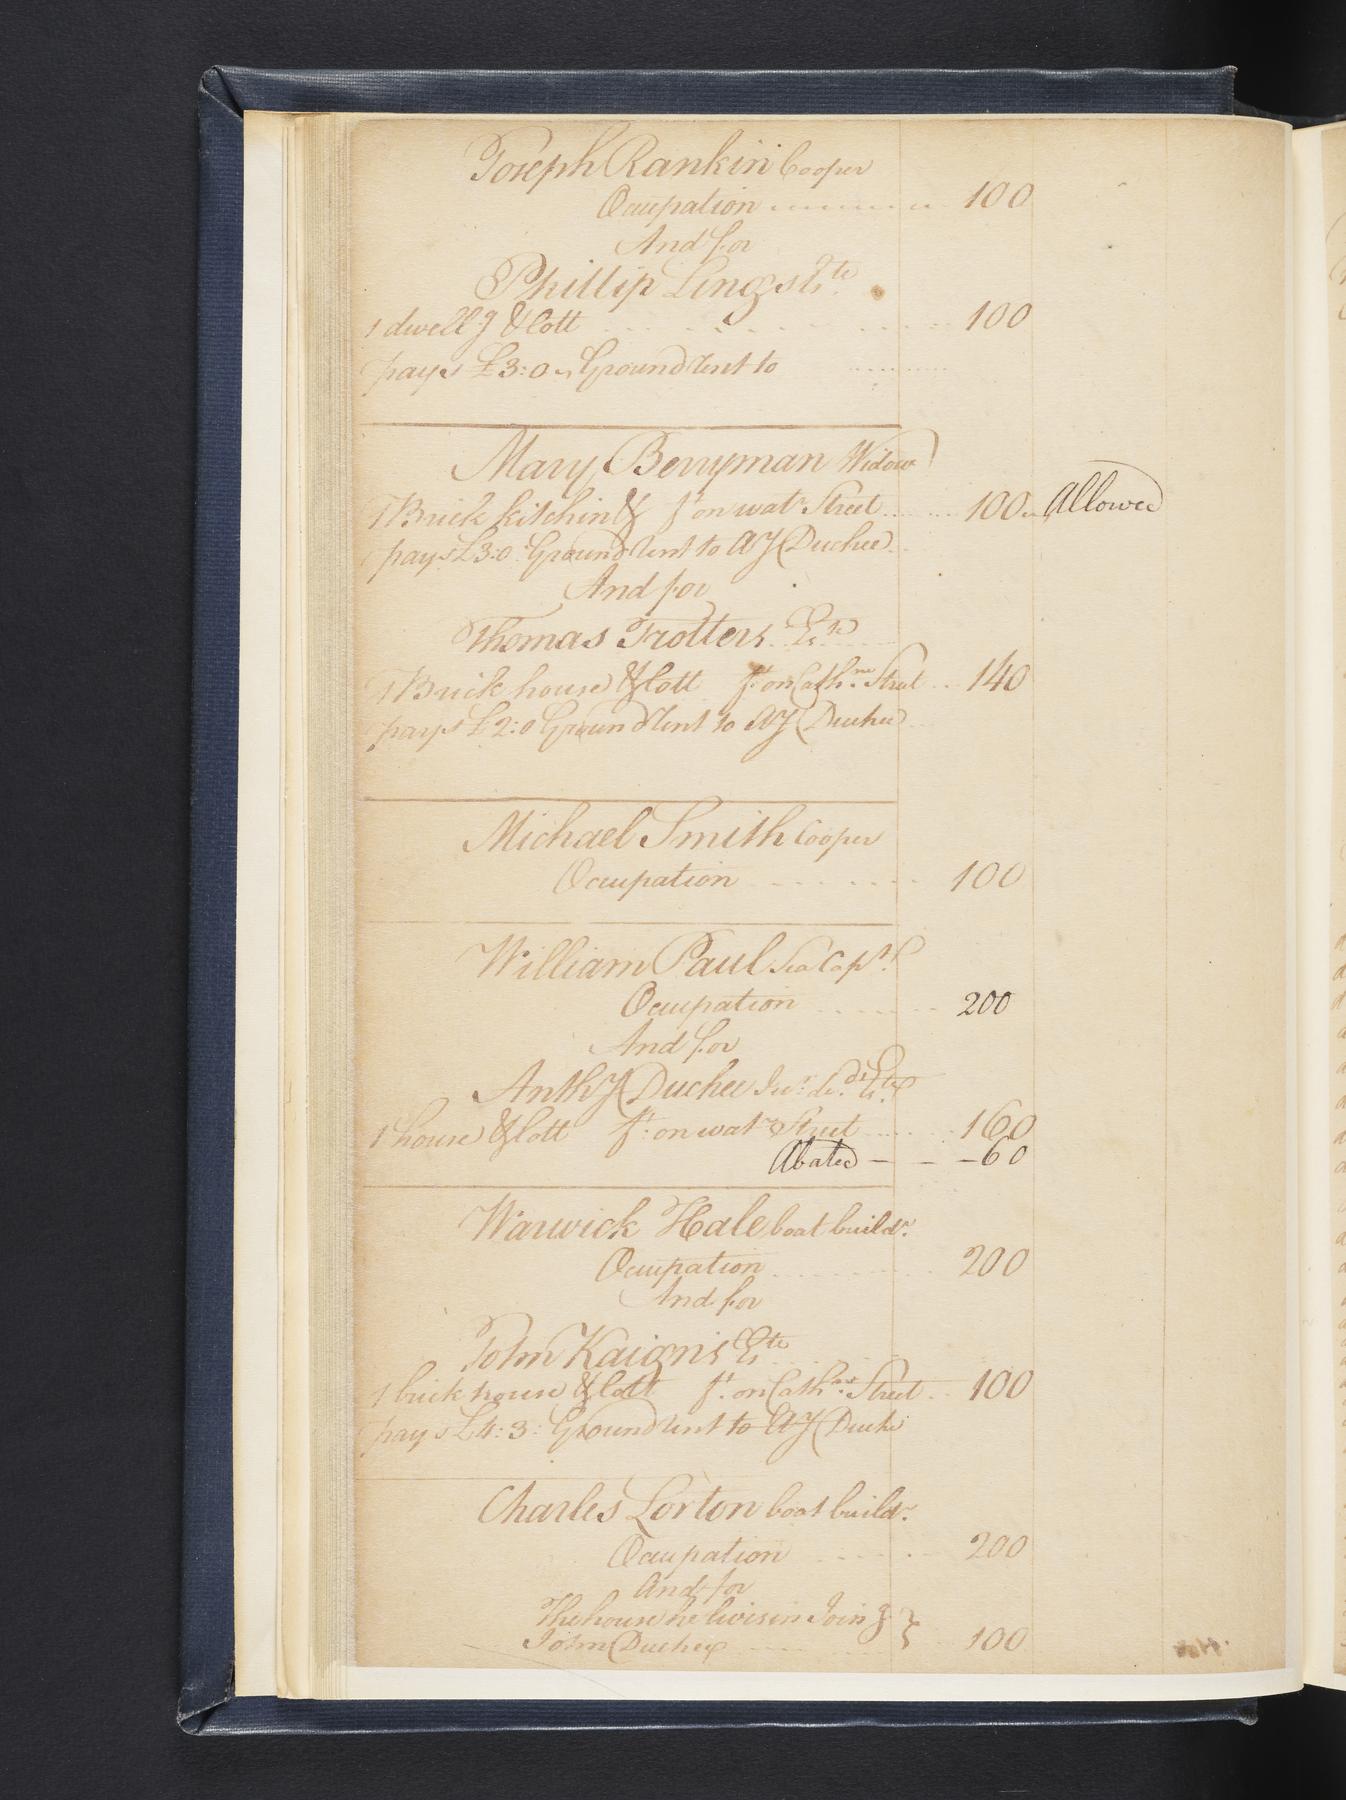 Joseph Rankin Cooper
Ocupation 100
And for
Phillip Lings Es.te
1 dwell'g & lott 100
pays £3:0 Ground Rent to
Mary Berryman Widow
1 Brick kitchin & f.t on wat.r Street 100 Allowed
pays £3:0 Ground Rent to A Duchee
And for
Thomas Trotters Es.te
1 Brick house & lott f.t on Cath.ne Street 140
pays £2:0 Ground Rent to A Duchee
Michael Smith Cooper
Ocupation 100
William Paul Sea Cap.t
Ocupation 200
And for
Anth.y Duchee Es.te
1 house & lott f.t on wat.r Street 160
Abated — — — 60
Warwick Hale boat build.r
Ocupation 200
And for
John Kaigns Es.te
1 brick house & lott f.t on Cath.ne Street 100
pays £4:3: Ground Rent to A Duche
Charles Lorton boat build.r
Ocupation 200
And for
The house he lives in Join'g
John Duchee 100